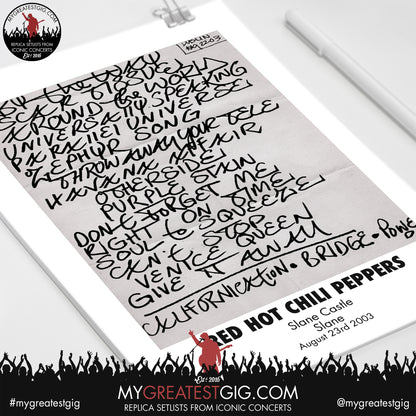 MYGREATESTGIG.COM
REPLICA SETLISTS FROM
ICONIC CONCERTS
Est 2015
DUBLIN
AUG, 22.03
BY THE WAY
SCAR TISSUE
AROUND the WORLD
UNIVERSALLY SPEAKING
PARALLEL UNIVERSE
ZEPHYR SONG
THROW AWAY YOUR TELE
HAVANA AFFAIR
OTHERSIDE
PURPLE STAIN
DON't forget ME
RIGHT ON TIME
SOUL to SQUEEZE
CAN't STOP
VENICE QUEEN
GIVE It AWAY
CALIFORNICATION • BRIDGE •
RED HOT CHILI PEPPERS
Slane Castle
Slane
August 23rd 2003
Est 2015
MYGREATESTGIG.COM
REPLICA SETLISTS FROM ICONIC CONCERTS
#mygreatestgig
@mygreatestgig